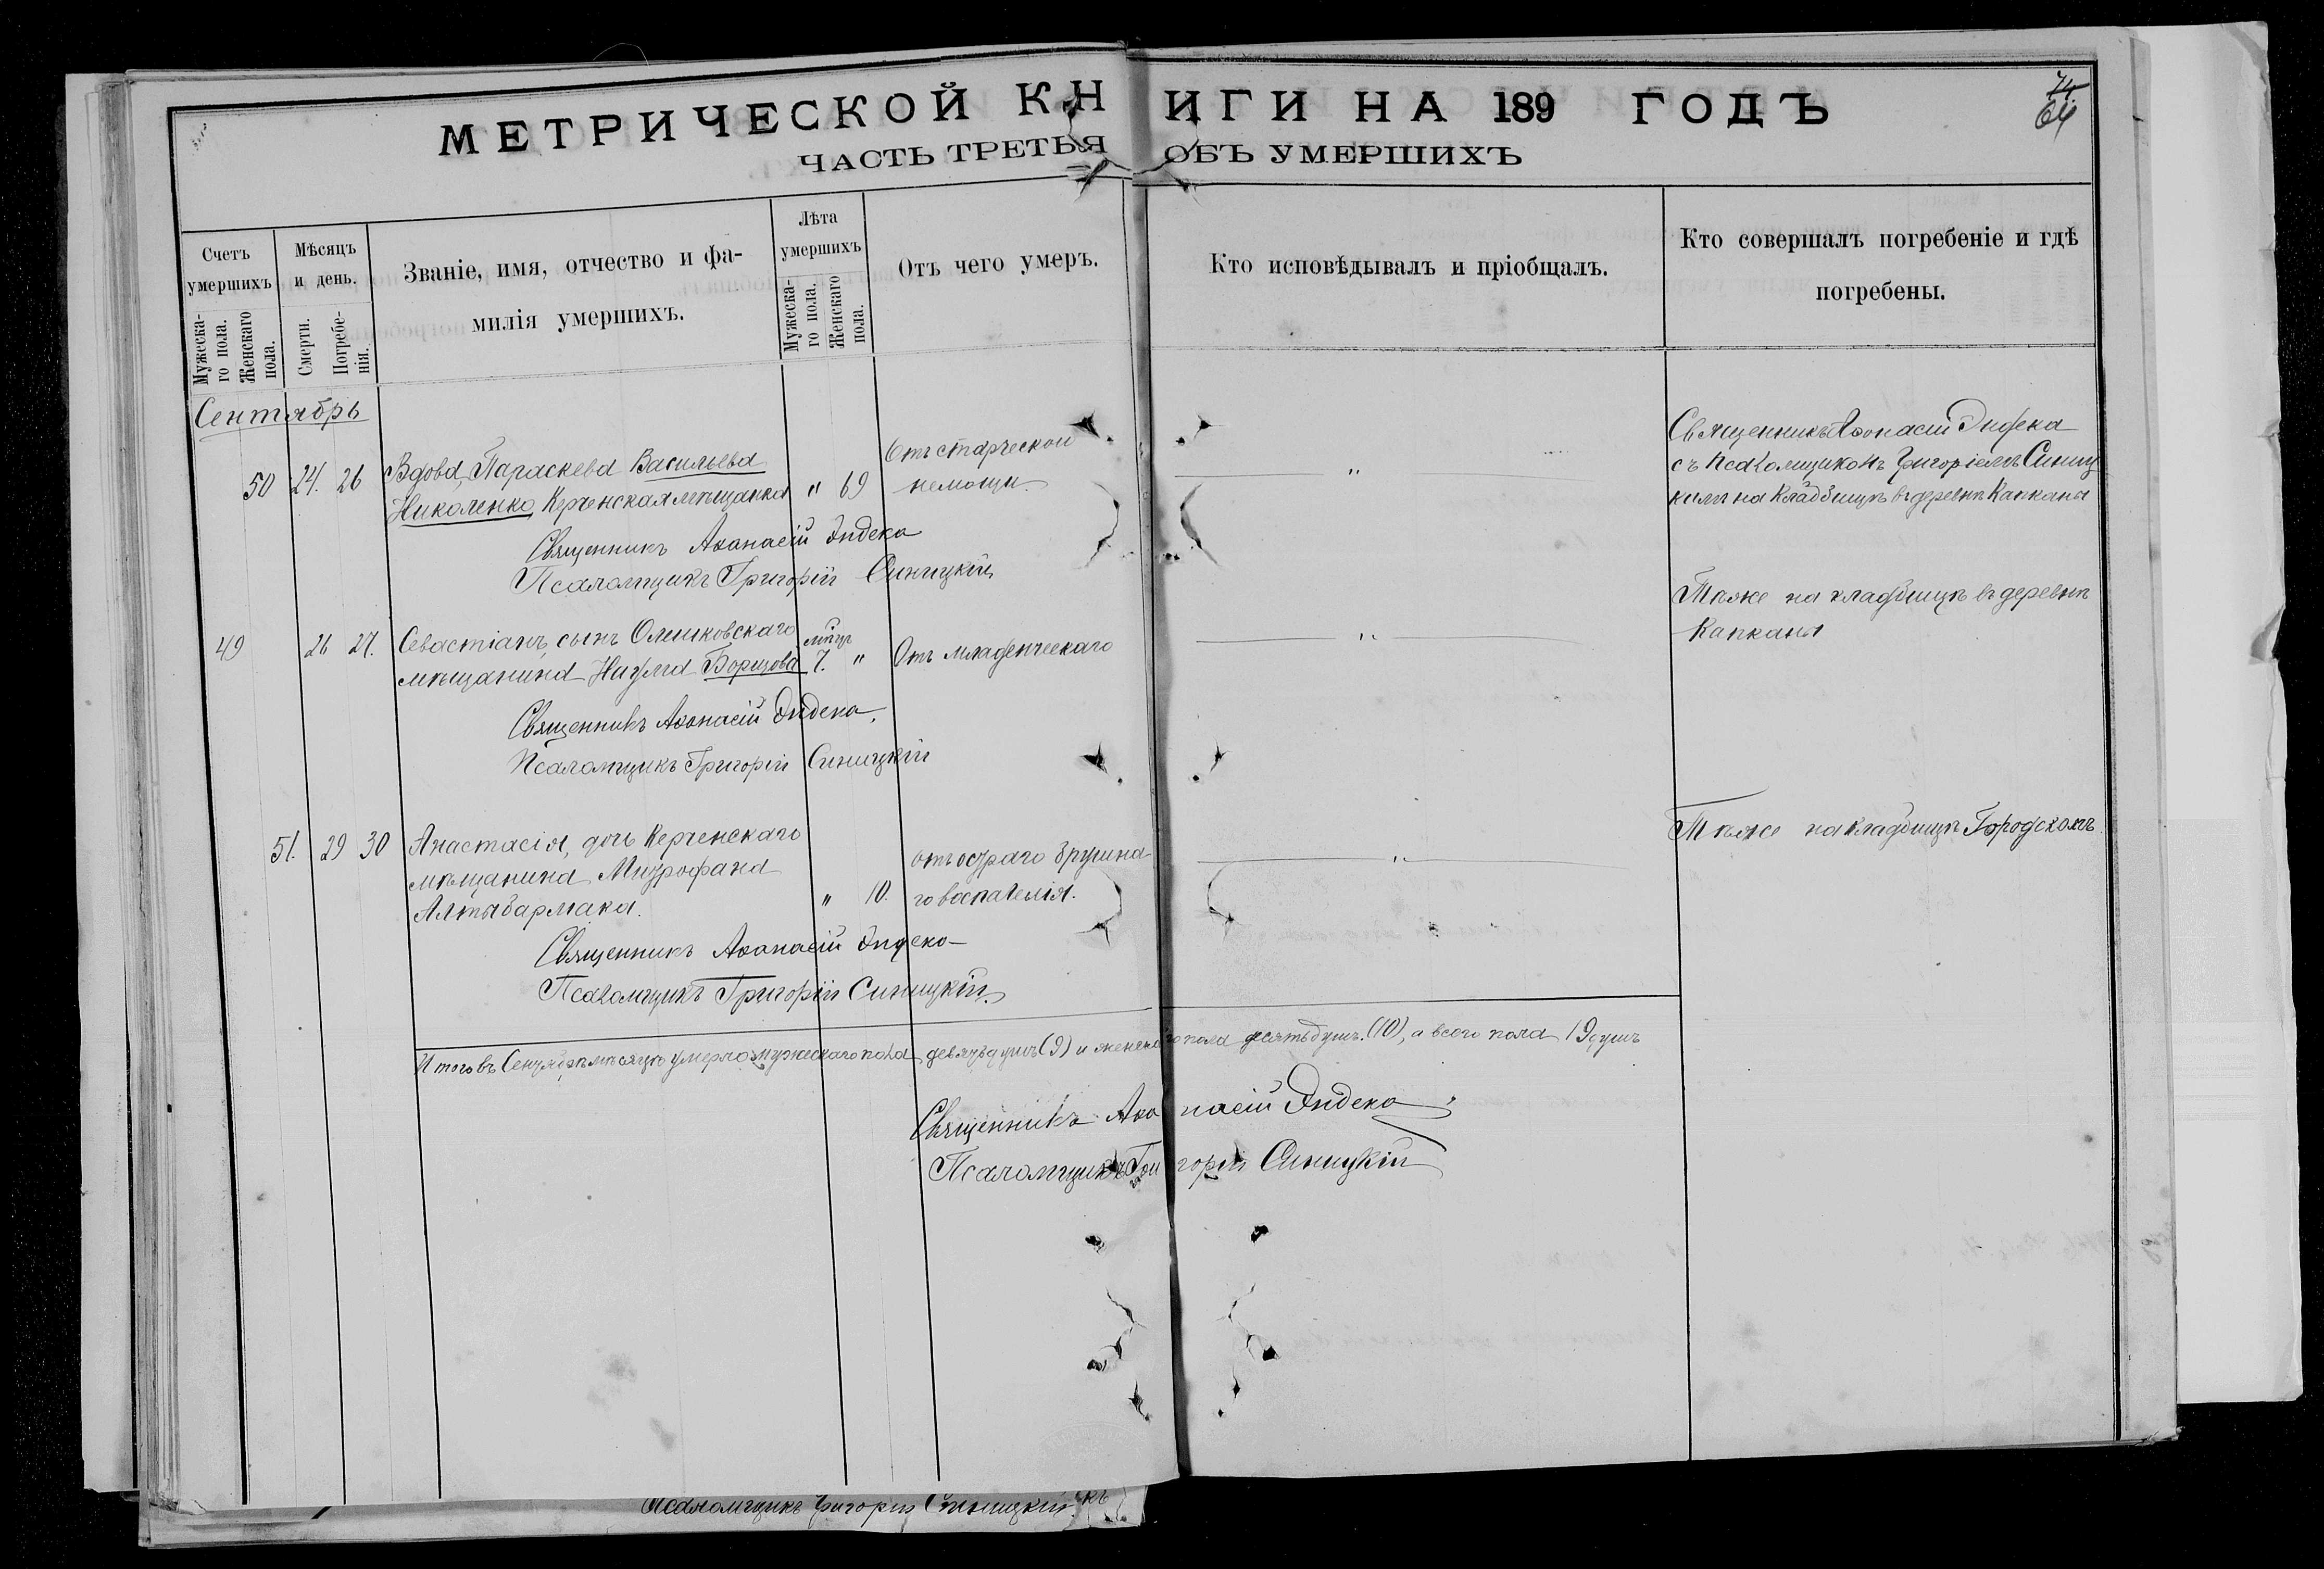 МЕТРИЧЕСКОЙ КНИГИ НА 189 ГОДЪ
ЧАСТЬ ТРЕТЬЯ ОБЪ УМЕРШИХЪ
64
Счетъ
умершихъ
Мужеска-
го пола.
Женскаго
пола.
Мѣсяцъ
и день.
Смерти.
Погребе-
нія.
Званіе, имя, отчество и фа-
милія умершихъ.
Лѣта
умершихъ
Мужеска-
го пола.
Женскаго
пола.
Отъ чего умеръ.
Кто исповѣдывалъ и пріобщалъ.
Кто совершалъ погребеніе и гдѣ
погребены.
Сентябрь
50 24. 26
Вдова, Параскева Васильева
Николенко, Керченская мѣщанка
" 69
Отъ старческой
немощи.
"
Священникъ Аѳонасій Эндека
съ псаломщикомъ Григоріемъ Синиц
кимъ на кладбищѣ въ деревнѣ Капканы
Священникъ Аѳанасій Эндека
Псаломщикъ Григорій Синицкій
49 26 27.
Севастіанъ, сынъ Олешковскаго
мѣщанина Наума Борщова
мѣсц.
7. "
Отъ младенческаго
"
Тѣже на кладбищѣ въ деревнѣ
Капканы
Священникъ Аѳанасій Эндека.
Псаломщикъ Григорій Синицкій
51. 29 30
Анастасія, дочь Керченскаго
мѣщанина Митрофана
Алтыбармака.
" 10.
отъ остраго брушна
го воспаленія.
"
Тѣже на кладбищѣ Городскомъ
Священникъ Аѳанасій Эндека
Псаломщикъ Григорій Синицкій.
Итого въ Сентябрѣ мѣсяцѣ умерло мужескаго пола девять душъ (9) и женскаго пола десять душъ. (10), а всего пола 19 душъ
Священникъ Аѳанасій Эндека
Псаломщикъ Григорій Синицкій
Псаломщикъ Григорій Синицкій.